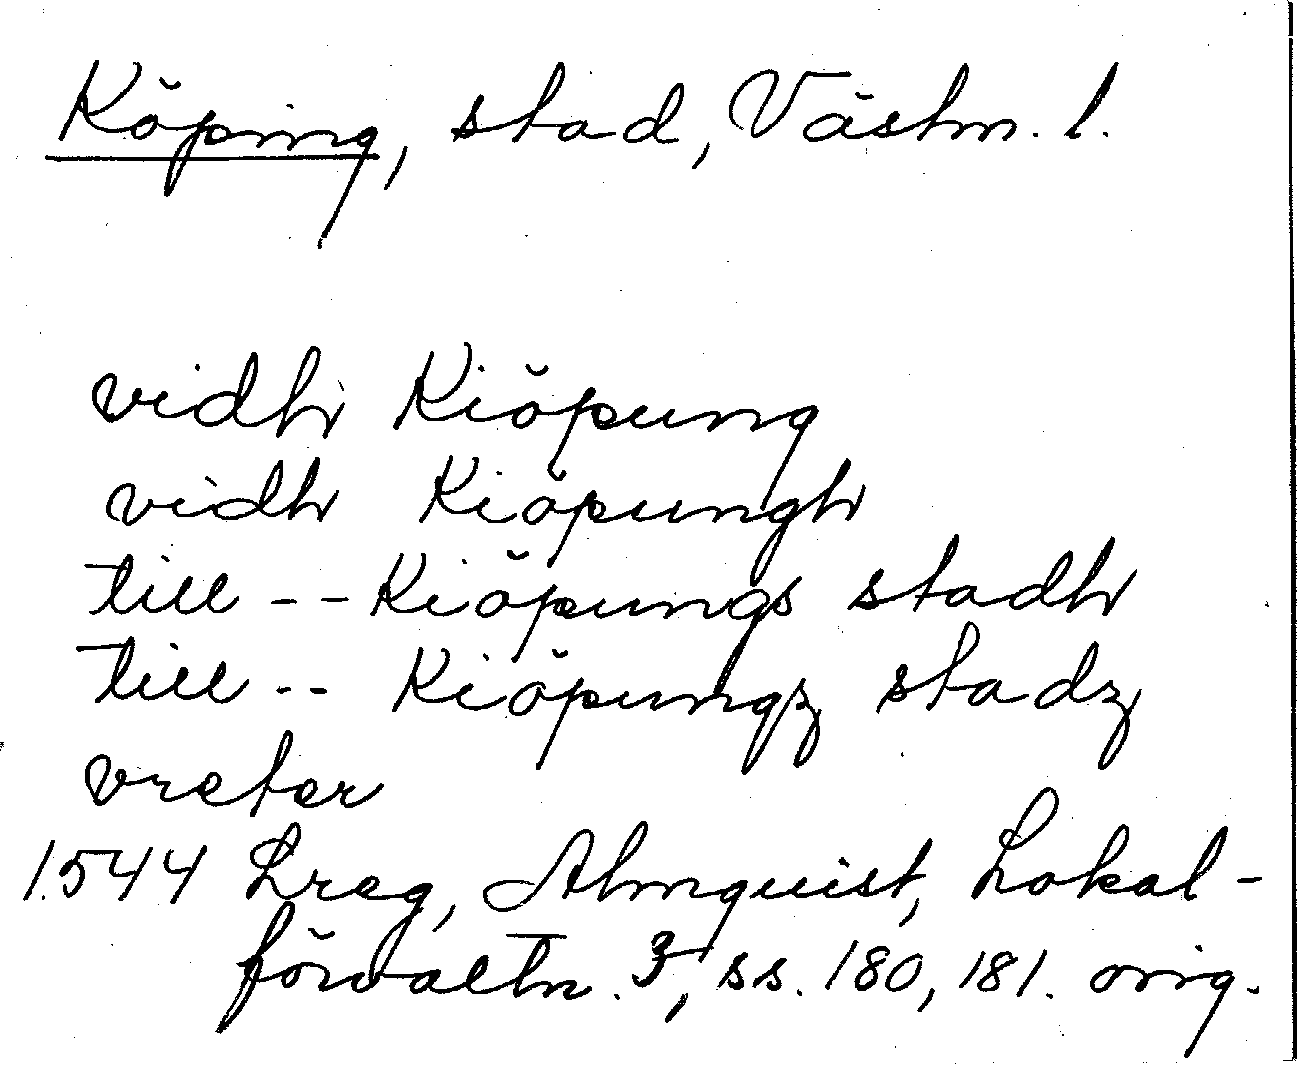 Köping, stad, Västm. l.
vidh Kiöpung
vidh Kiöpungh
till -- Kiöpungs stadh
till -- Kiöpungz stadz
vreter
1544 Lreg, Almquist, Lokal-
förvaltn. 3, ss. 180, 181. orig.